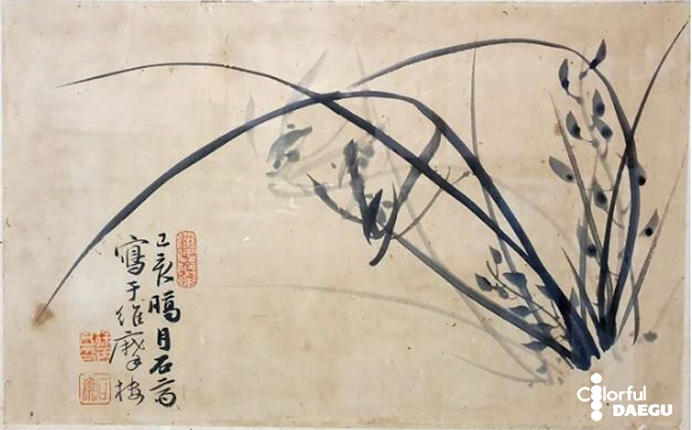 己亥臈月石齋
寫于維摩樓
Colorful
DAEGU